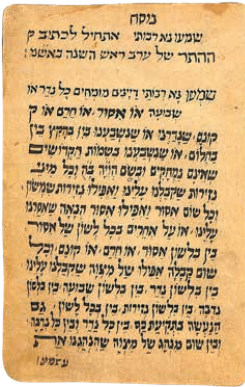 נוסח
שמעו נא רבותי אתחיל לכתוב
ההתר של ערב ראש השנה באשמ
שמעו נא רבותי דיינים מומחים כל נדר או
שבועה או אסור או חרם או ק
קונם שנדרנו או שנשבענו בין בהקיץ בין
בחלום או שנשבענו בשמות הקדושים
שאינם נמחקים ובשם הויה בה וכל מיני
נזירות שקבלנו עלינו ואפילו נזירות שמשון
וכל שום אסור ואפילו אסור הנאה שאסרנו
עלינו או על אחרים בכל לשון של אסור
בין בלשון אסור או חרם או קונם וכל
שום קבלה אפילו של מצוה שקבלנו עלינו
בין בלשון נדר בין בלשון שבועה בין בלשון
נדבה בין בלשון נזירות בין בכל לשון גם
הנעשה בתקיעת כף בין כל נדר בין כל נדבה
ובין שום מנהג של מצוה שנהגנו את
עצמינו